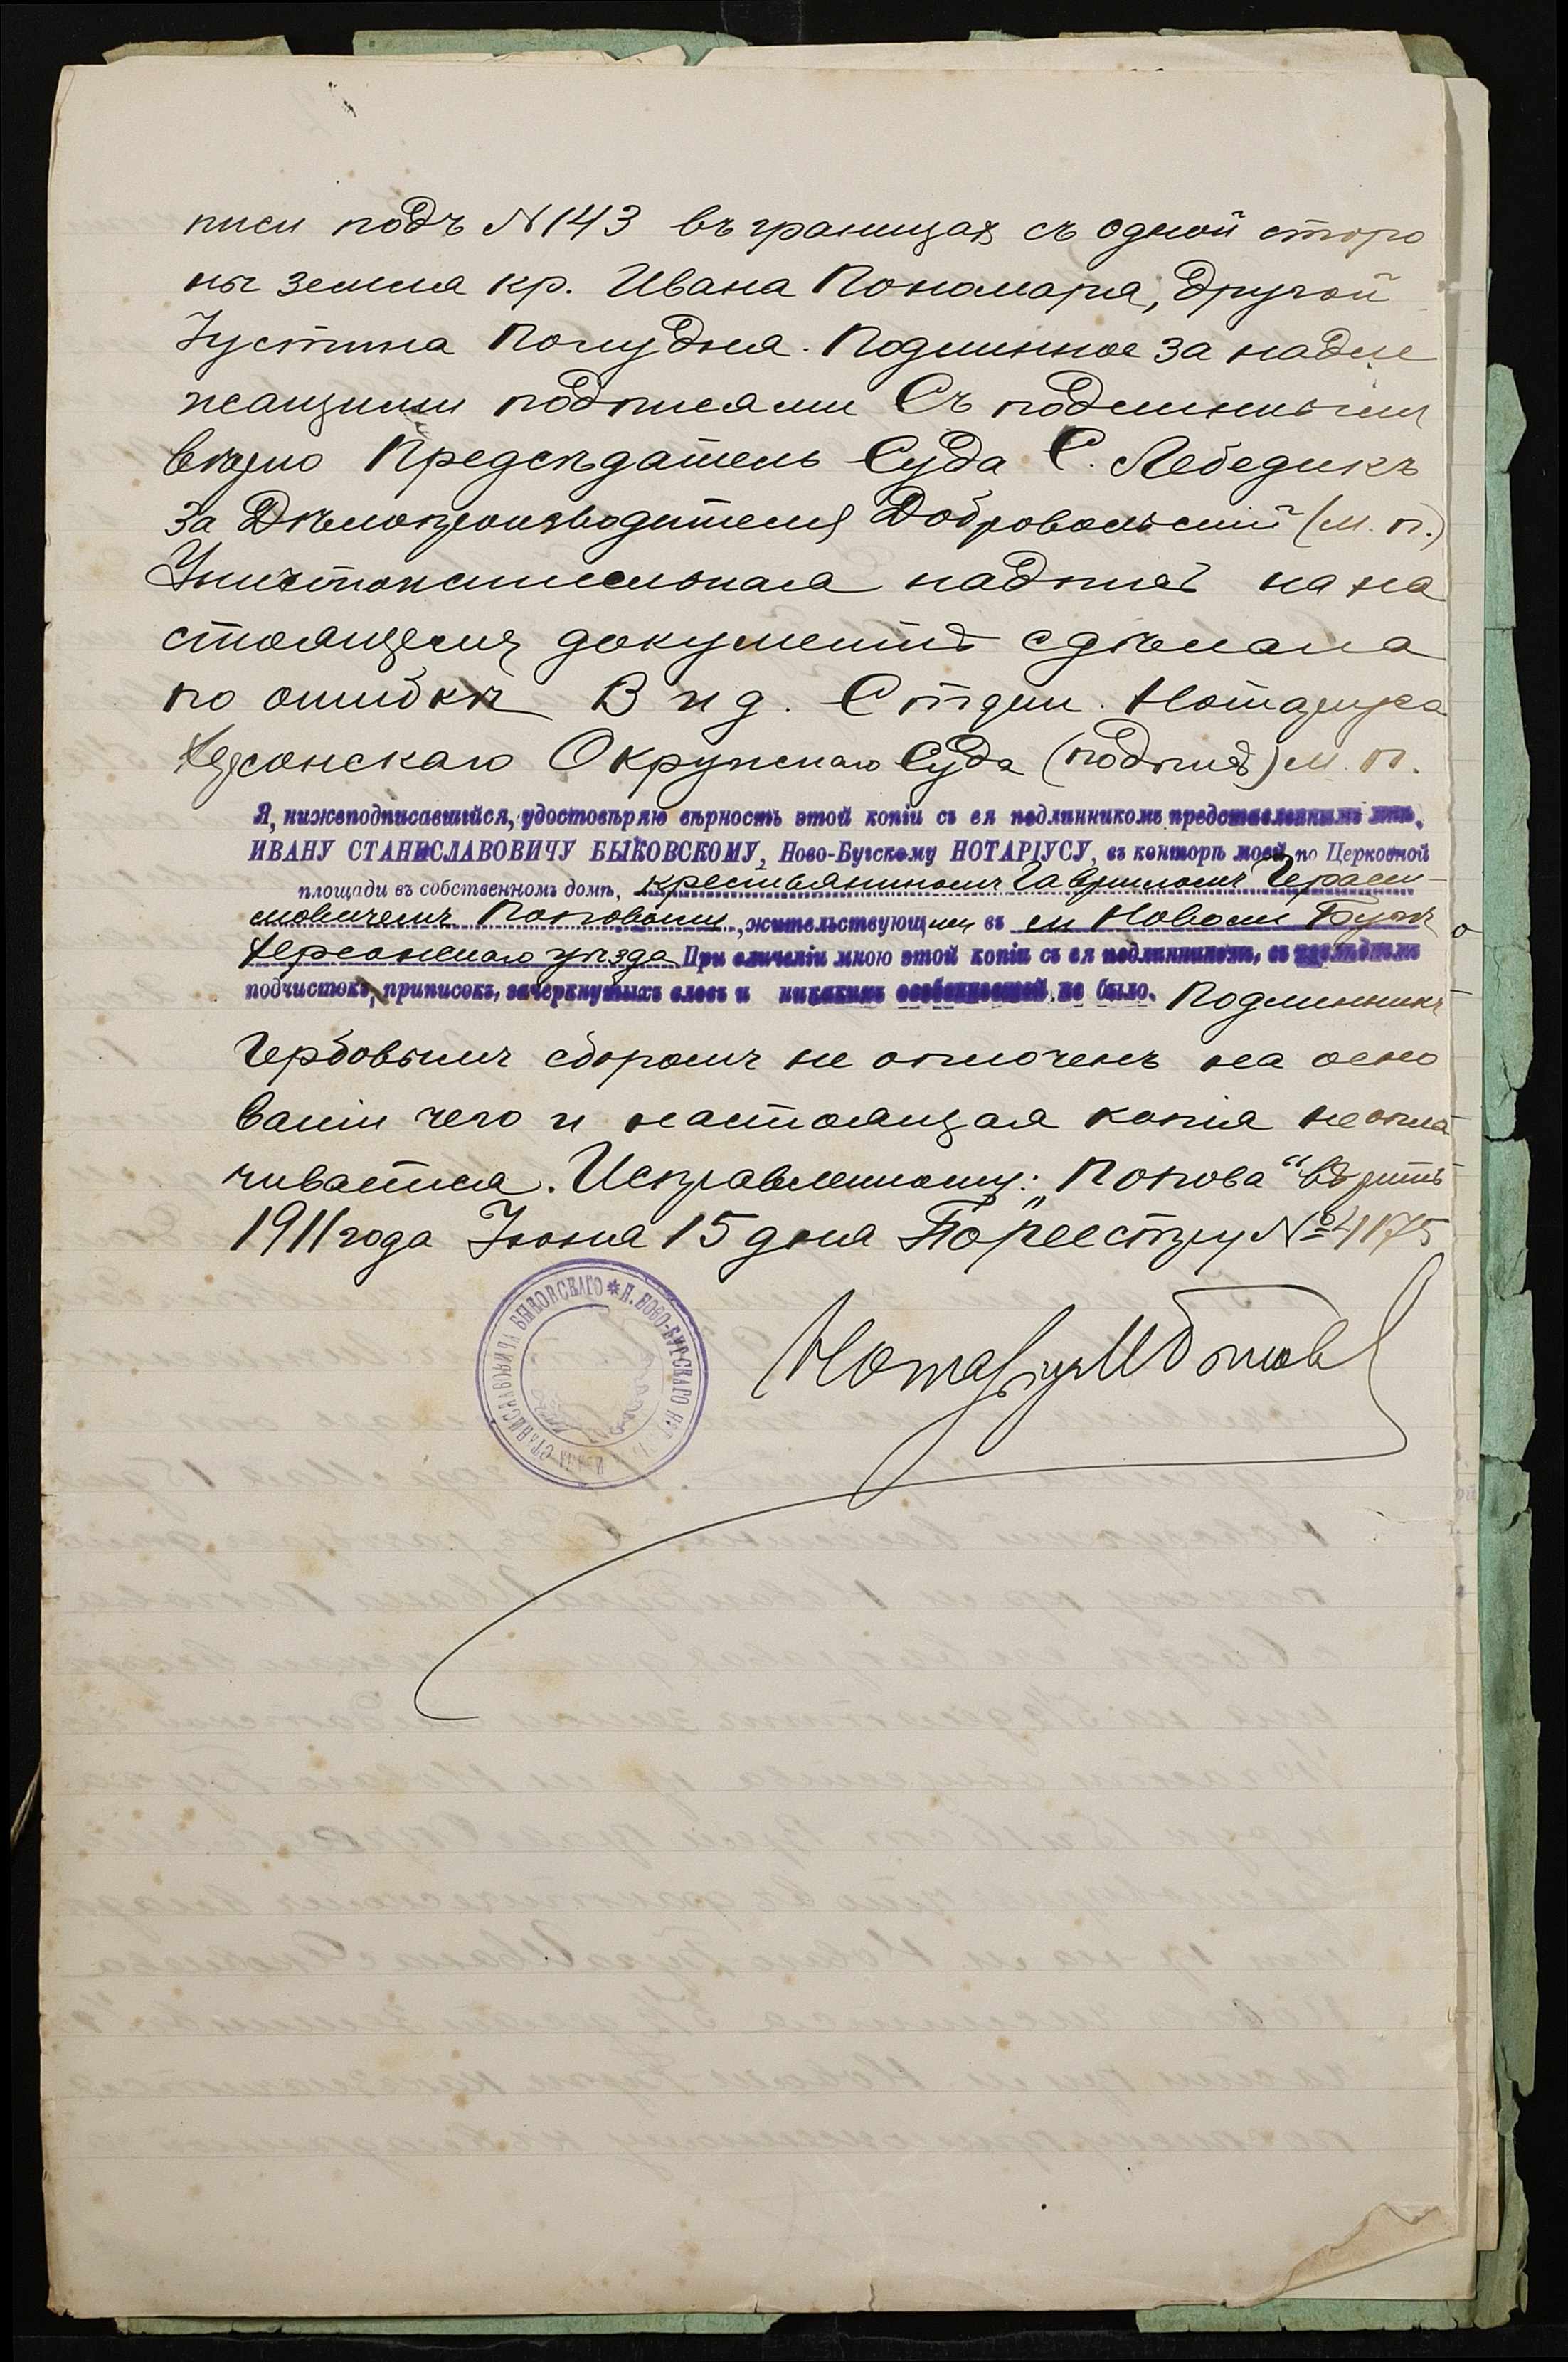 писи подъ N 143 въ границах съ одной сторо
ны земля кр. Ивана Пономаря, другой
Iустина Полудня. Подлинное за надле
жащими подписями Съ подлиннымъ
вѣрно Предсѣдатель Суда С. Лебедикъ
За Дѣлопроизводителя Добровольскiй (м. п.)
Уничтоженная надпись на на
стоящемъ документѣ сдѣлана
по ошибкѣ В и д. Старш. Нотарiуса
Херсонскаго Окружнаго Суда (подпись) м. п.
Я, нижеподписавшiйся, удостовѣряю вѣрность этой копiи съ ея подлинникомъ представленнымъ мнѣ,
ИВАНУ СТАНИСЛАВОВИЧУ БЫКОВСКОМУ, Ново-Бугскому НОТАРIУСУ, въ конторѣ моей, по Церковной
площади въ собственномъ домѣ, крестьяниномъ Гаврииломъ Гераси-
мовичемъ Поповымъ, жительствующимъ въ м Новомъ Бугѣ
Херсонскаго уѣзда При сличенiи мною этой копiи съ ея подлинникомъ, въ послѣднемъ
подчистокъ, приписокъ, зачеркнутыхъ словъ и никакихъ особенностей, не было. Подлинникъ
Гербовымъ сборомъ не оплоченъ на осно
ванiи чего и настоящая копiя не опла
чивается. Исправленному: „Попова“ вѣрить
1911 года Iюня 15 дня По реестру № 4175
И. НОВО-БУГСКАГО ИВАНА СТАНИСЛАВОВИЧА БЫКОВСКАГО
Нотарiусъ